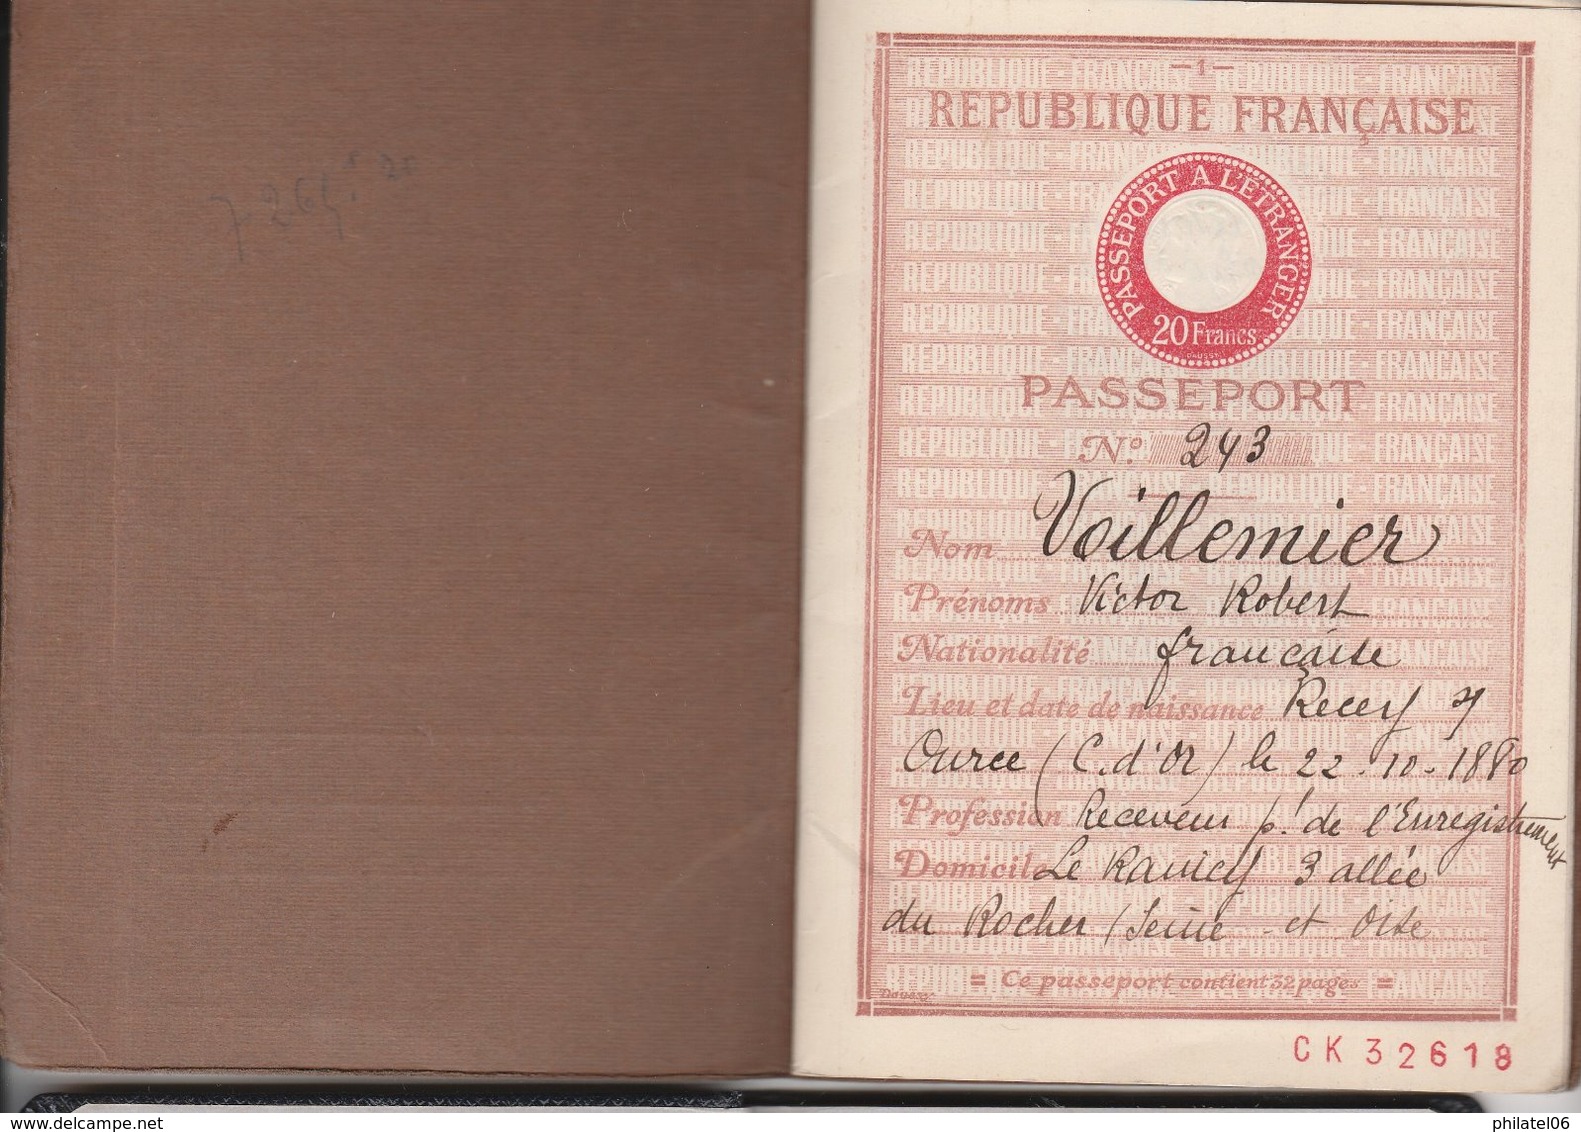 — 1 —
REPUBLIQUE FRANÇAISE
PASSEPORT A L'ETRANGER
20 Francs
PASSEPORT
N° 243
Nom Voillemier
Prénoms Victor Robert
Nationalité française
Lieu et date de naissance Recey s/
Ource (C. d'Or) le 22-10-1880
Profession Receveur p.l de l'Enregistrement
Domicile Le Raincy 3 allée
du Rocher (Seine-et Oise
= Ce passeport contient 32 pages =
CK 32618
delcampe.net
philatel06